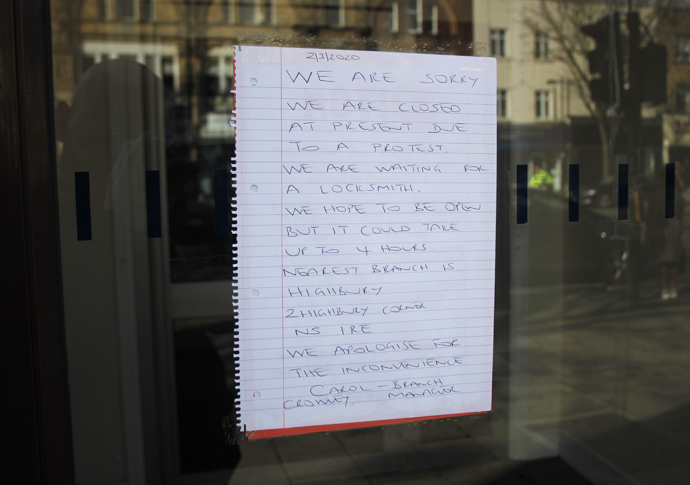 2/3/2020
WE ARE SORRY
WE ARE CLOSED
AT PRESENT DUE
TO A PROTEST.
WE ARE WAITING FOR
A LOCKSMITH.
WE HOPE TO BE OPEN
BUT IT COULD TAKE
UP TO 4 HOURS
NEAREST BRANCH IS
HIGHBURY
2 HIGHBURY CORNER
N5 1RE
WE APOLOGISE FOR
THE INCONVENIENCE
CAROL - BRANCH
MANAGER